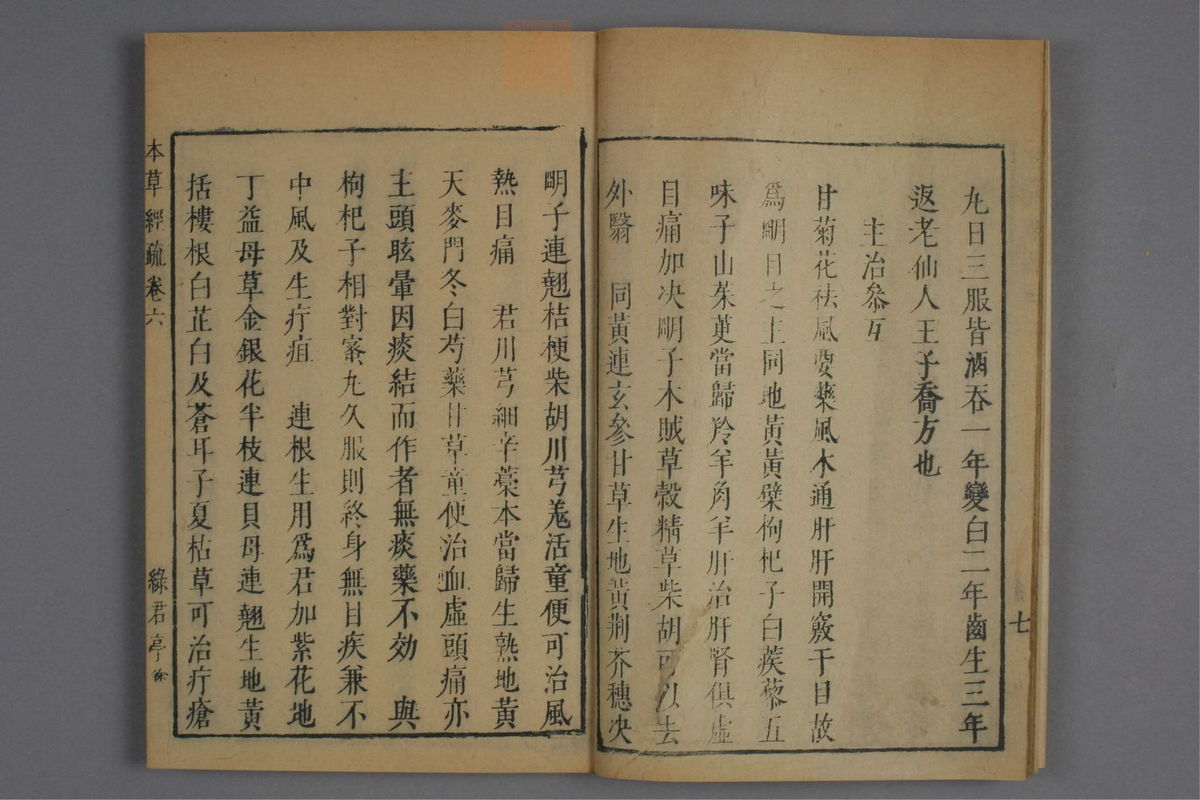 丸日三服皆酒吞一年變白二年齒生三年
返老仙人王子喬方也
主治參互
甘菊花祛風要藥風木通肝肝開竅于目故
爲明目之主同地黃黃檗枸杞子白蒺藜五
味子山茱萸當歸羚羊角羊肝治肝腎俱虛
目痛加决明子木賊草穀精草柴胡可以去
外翳　同黃連玄參甘草生地黃荆芥穗决
七
明子連翹桔梗柴胡川芎羗活童便可治風
熱目痛　君川芎細辛藁本當歸生熟地黃
天麥門冬白芍藥甘草童便治血虛頭痛亦
主頭眩暈因痰結而作者無痰藥不効　與
枸杞子相對蜜丸久服則終身無目疾兼不
中風及生疔疽　連根生用爲君加紫花地
丁益母草金銀花半枝連貝母連翹生地黃
括樓根白芷白及蒼耳子夏枯草可治疔瘡
本草經疏卷六
綠君亭